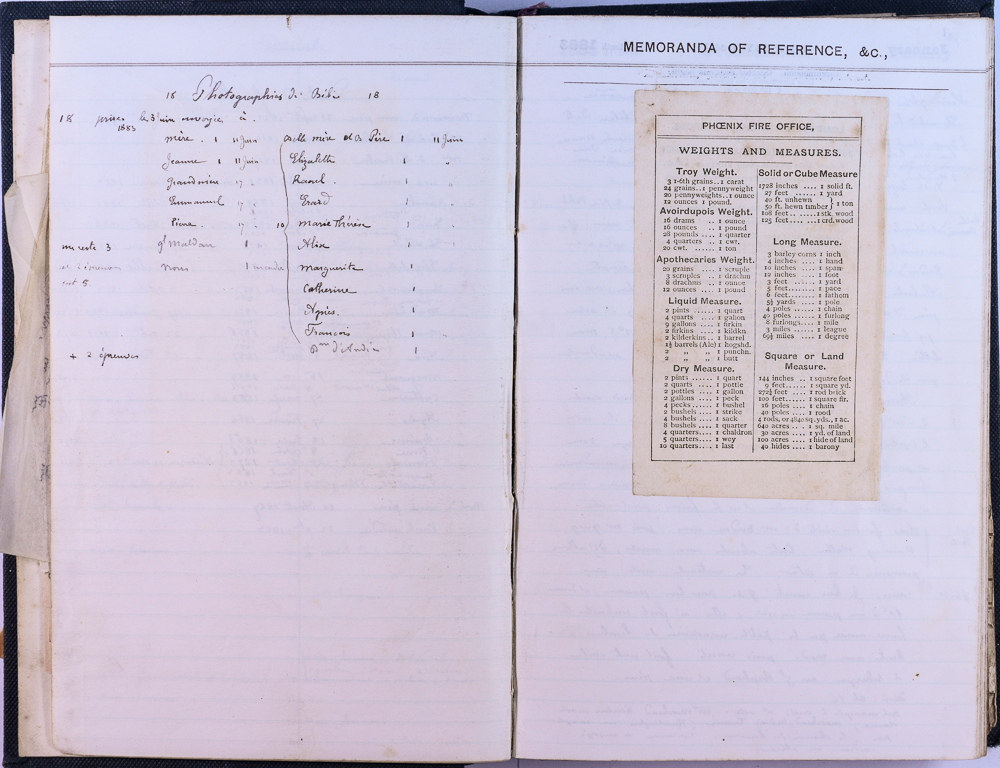 18 Photographies de Bébé 18
18 prises le 3 juin envoyées à
1883
mère. 1 11 Juin
Jeanne 1 11 Juin
grand mère 17
Emmanuel 17
Pierre. 17
gd Maldan 1
nous 1
belle mère et B Père 1 11 Juin
Elizabeth 1 "
Raoul. 1 "
10
Marie Thérèse 1
Alix 1
Marguerite 1
Catherine 1
Agnès. 1
François 1
1
me reste 3
+ 2 épreuves
MEMORANDA OF REFERENCE, &c.,
PHŒNIX FIRE OFFICE,
WEIGHTS AND MEASURES.
Troy Weight.
3 1-6th grains..1 carat
24 grains..1 pennyweight
20 pennyweights..1 ounce
12 ounces 1 pound.
Avoirdupois Weight.
16 drams .. 1 ounce
16 ounces .. 1 pound
28 pounds .. 1 quarter
4 quarters .. 1 cwt.
20 cwt. ...... 1 ton
Apothecaries Weight.
20 grains .... 1 scruple
3 scruples .. 1 drachm
8 drachms .. 1 ounce
12 ounces .... 1 pound
Liquid Measure.
2 pints ...... 1 quart
4 quarts .... 1 gallon
9 gallons .... 1 firkin
2 firkins .... 1 kildkn.
2 kilderkins .. 1 barrel
1½ barrels (Ale) 1 hogshd.
2 " " 1 punchn.
2 " " 1 butt
Dry Measure.
2 pints ...... 1 quart
2 quarts .... 1 pottle
2 pottles .... 1 gallon
2 gallons .... 1 peck
4 pecks...... 1 bushel
2 bushels .... 1 strike
4 bushels .... 1 sack
8 bushels .... 1 quarter
4 quarters.... 1 chaldron
5 quarters.... 1 wey
10 quarters.... 1 last
Solid or Cube Measure
1728 inches .... 1 solid ft.
27 feet ...... 1 yard
40 ft. unhewn } 1 ton
50 ft. hewn timber
108 feet......1 stk. wood
125 feet......1 crd. wood
Long Measure.
3 barley corns 1 inch
4 inches .... 1 hand
10 inches .... 1 span
12 inches .... 1 foot
3 feet ...... 1 yard
5 feet...... 1 pace
6 feet...... 1 fathom
5½ yards .... 1 pole
4 poles .... 1 chain
40 poles .... 1 furlong
8 furlongs.... 1 mile
3 miles .... 1 league
69½ miles .... 1 degree
Square or Land
Measure.
144 inches .. 1 square foot
9 feet...... 1 square yd.
272¼ feet .... 1 rod brick
100 feet...... 1 square flr.
16 poles .... 1 chain
40 poles .... 1 rood
4 rods, or 4840 sq. yds., 1 ac.
640 acres .... 1 sq. mile
30 acres .... 1 yd. of land
100 acres .... 1 hide of land
40 hides .... 1 barony